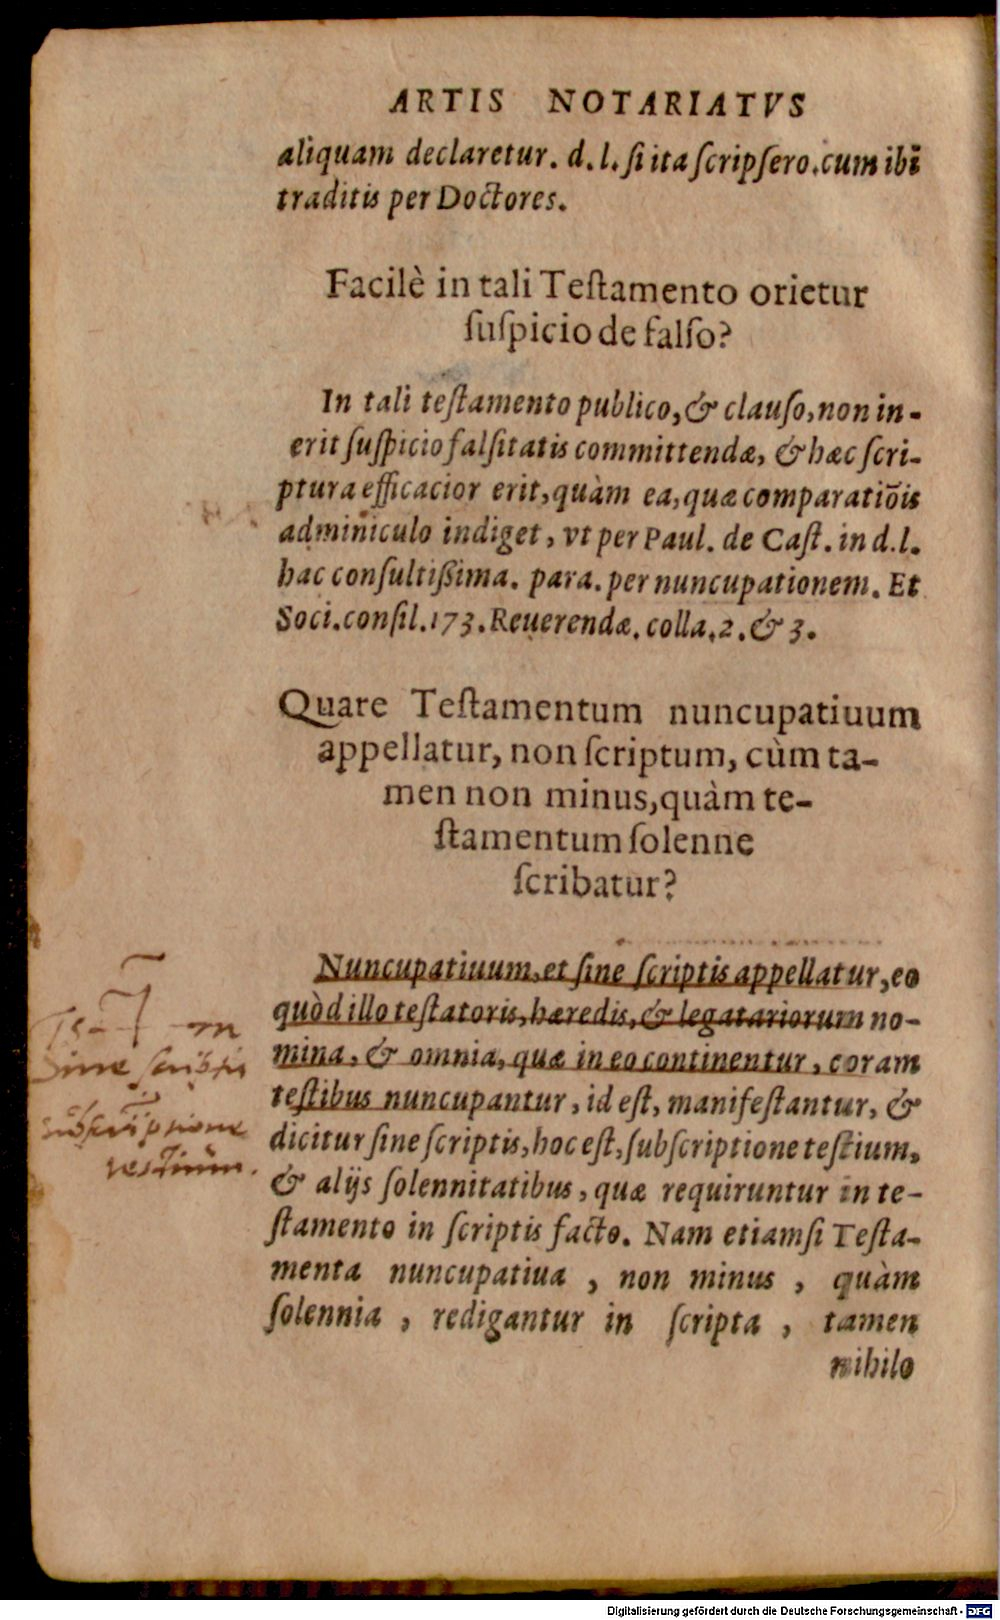 ARTIS NOTARIATVS
aliquam declaretur. d. l. ſi ita ſcripſero. cum ibi
traditis per Doctores.
Facilè in tali Teſtamento orietur
ſuſpicio de falſo?
In tali teſtamento publico, & clauſo, non in-
erit ſuſpicio falſitatis committendæ, & hæc ſcri-
ptura efficacior erit, quàm ea, quæ comparatiōis
adminiculo indiget, vt per Paul. de Caſt. in d. l.
hac conſultißima. para. per nuncupationem. Et
Soci. conſil. 173. Reuerendæ. colla. 2. & 3.
Quare Teſtamentum nuncupatiuum
appellatur, non ſcriptum, cùm ta-
men non minus, quàm te-
ſtamentum ſolenne
ſcribatur?
Nuncupatiuum, et ſine ſcriptis appellatur, eo
quòd illo teſtatoris, hæredis, & legatariorum no-
mina, & omnia, quæ in eo continentur, coram
teſtibus nuncupantur, id eſt, manifeſtantur, &
dicitur ſine ſcriptis, hoc eſt, ſubſcriptione teſtium,
& alijs ſolennitatibus, quæ requiruntur in te-
ſtamento in ſcriptis facto. Nam etiamſi Teſta-
menta nuncupatiua, non minus, quàm
ſolennia, redigantur in ſcripta, tamen
nihilo
Sine ſcriptis
subscriptione
testium.
Digitalisierung gefördert durch die Deutsche Forschungsgemeinschaft - DFG